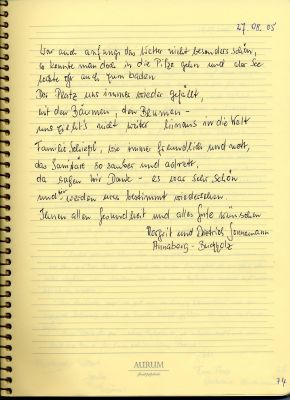 27.08.05
War auch anfangs das Wetter nicht besonders schön,
so konnte man doch in die Pilze gehn und der See
lockte oft auch zum baden
Der Platz uns immer wieder gefällt,
mit den Bäumen, den Blumen -
uns zieht's nicht weiter hinaus in die Welt
Familie, wie immer freundlich und nett,
das Sanitäre so sauber und adrett,
da sagen wir Danke - es war sehr schön
und wir werden uns bestimmt wiedersehen.
Ihnen allen Gesundheit und alles Gute wünschen
Margrit und Dietrich Sonnemann
Annaberg - Buchholz
AURUM
74